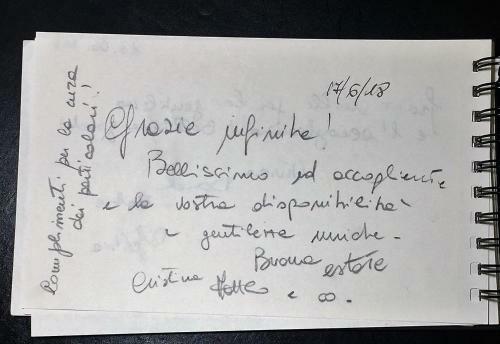 17/6/18
Grazie infinite!
Bellissimo ed accogliente
e la vostra disponibilità
e gentilezza uniche -
Buona estate
Cristina Matteo e
Complimenti per la cura
dei particolari!